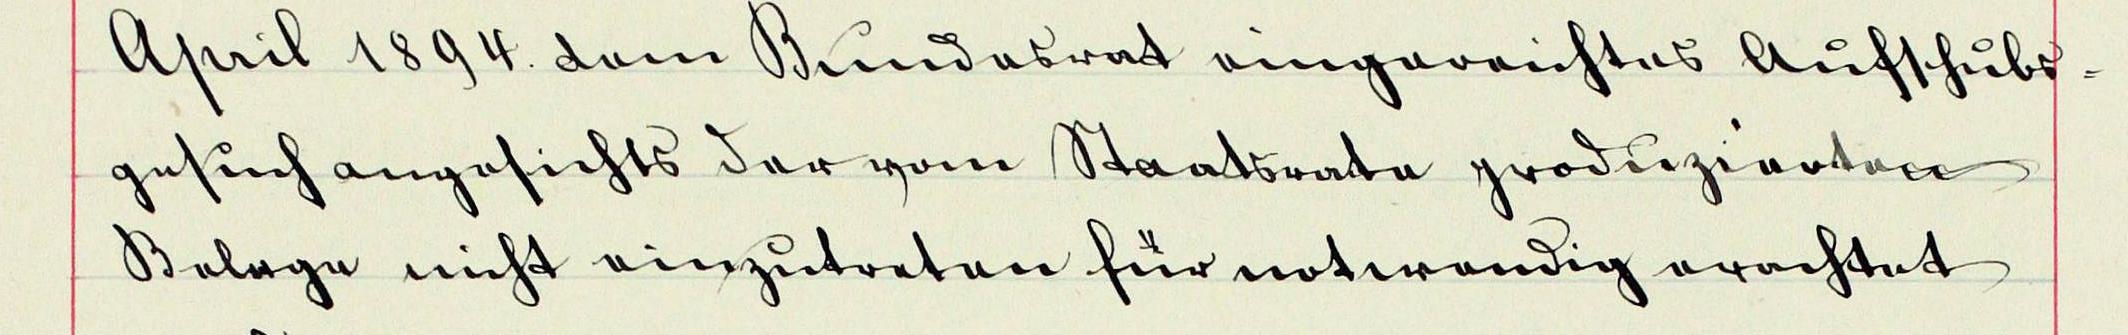 April 1894. dem Bundesrat eingereichtes Aufschubs-
gesuch angesichts der vom Staatsrate produzierten
Belege nicht einzutreten für notwendig erachtet